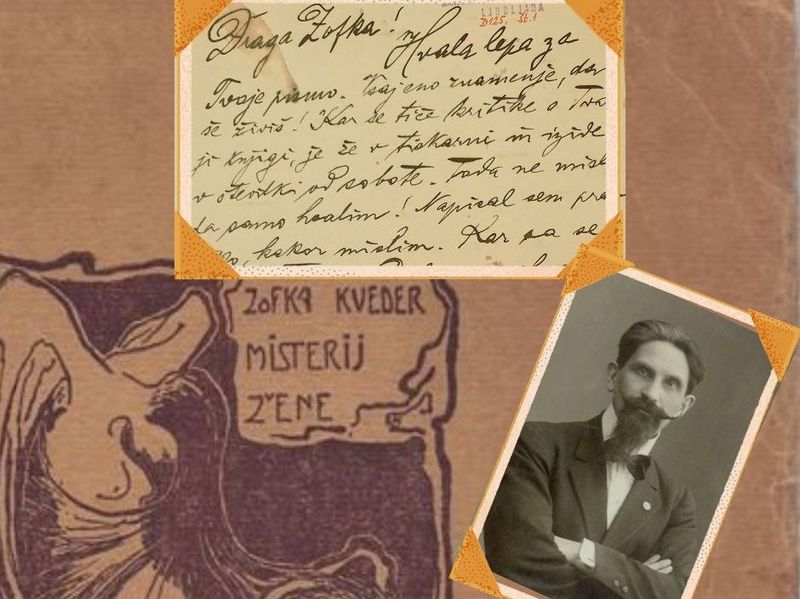 LJUBLJANA
D125, St.1
Draga Zofka! Hvala lepa za
Tvoje pismo. Vsaj eno znamenje, da
še živiš! Kar se tiče kritike o Tvo
ji knjigi, je že v tiskarni in izide
v številki od sobote. Toda ne misli
da samo hvalim! Napisal sem pra-
kakor mislim. Kar pa se
ZOFKA KVEDER
MISTERIJ
ŽENE